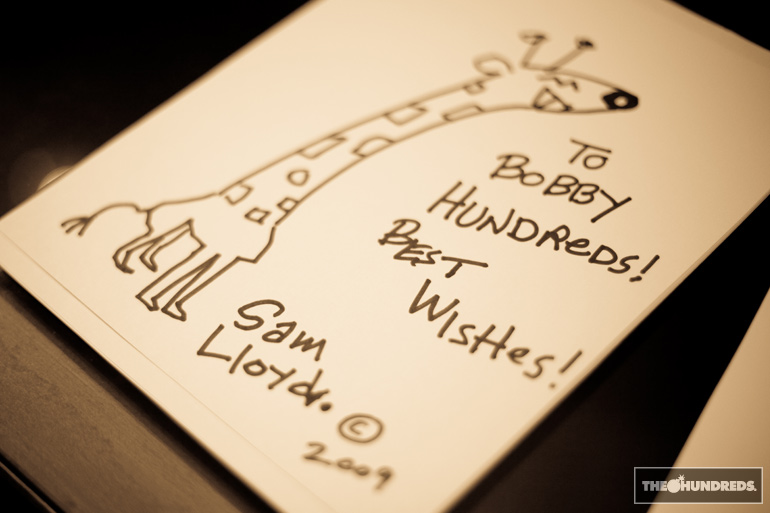 To
BOBBY
HUNDReDs!
BEST
WisHes!
Sam
Lloyd.
©
2009
THE HUNDREDS.